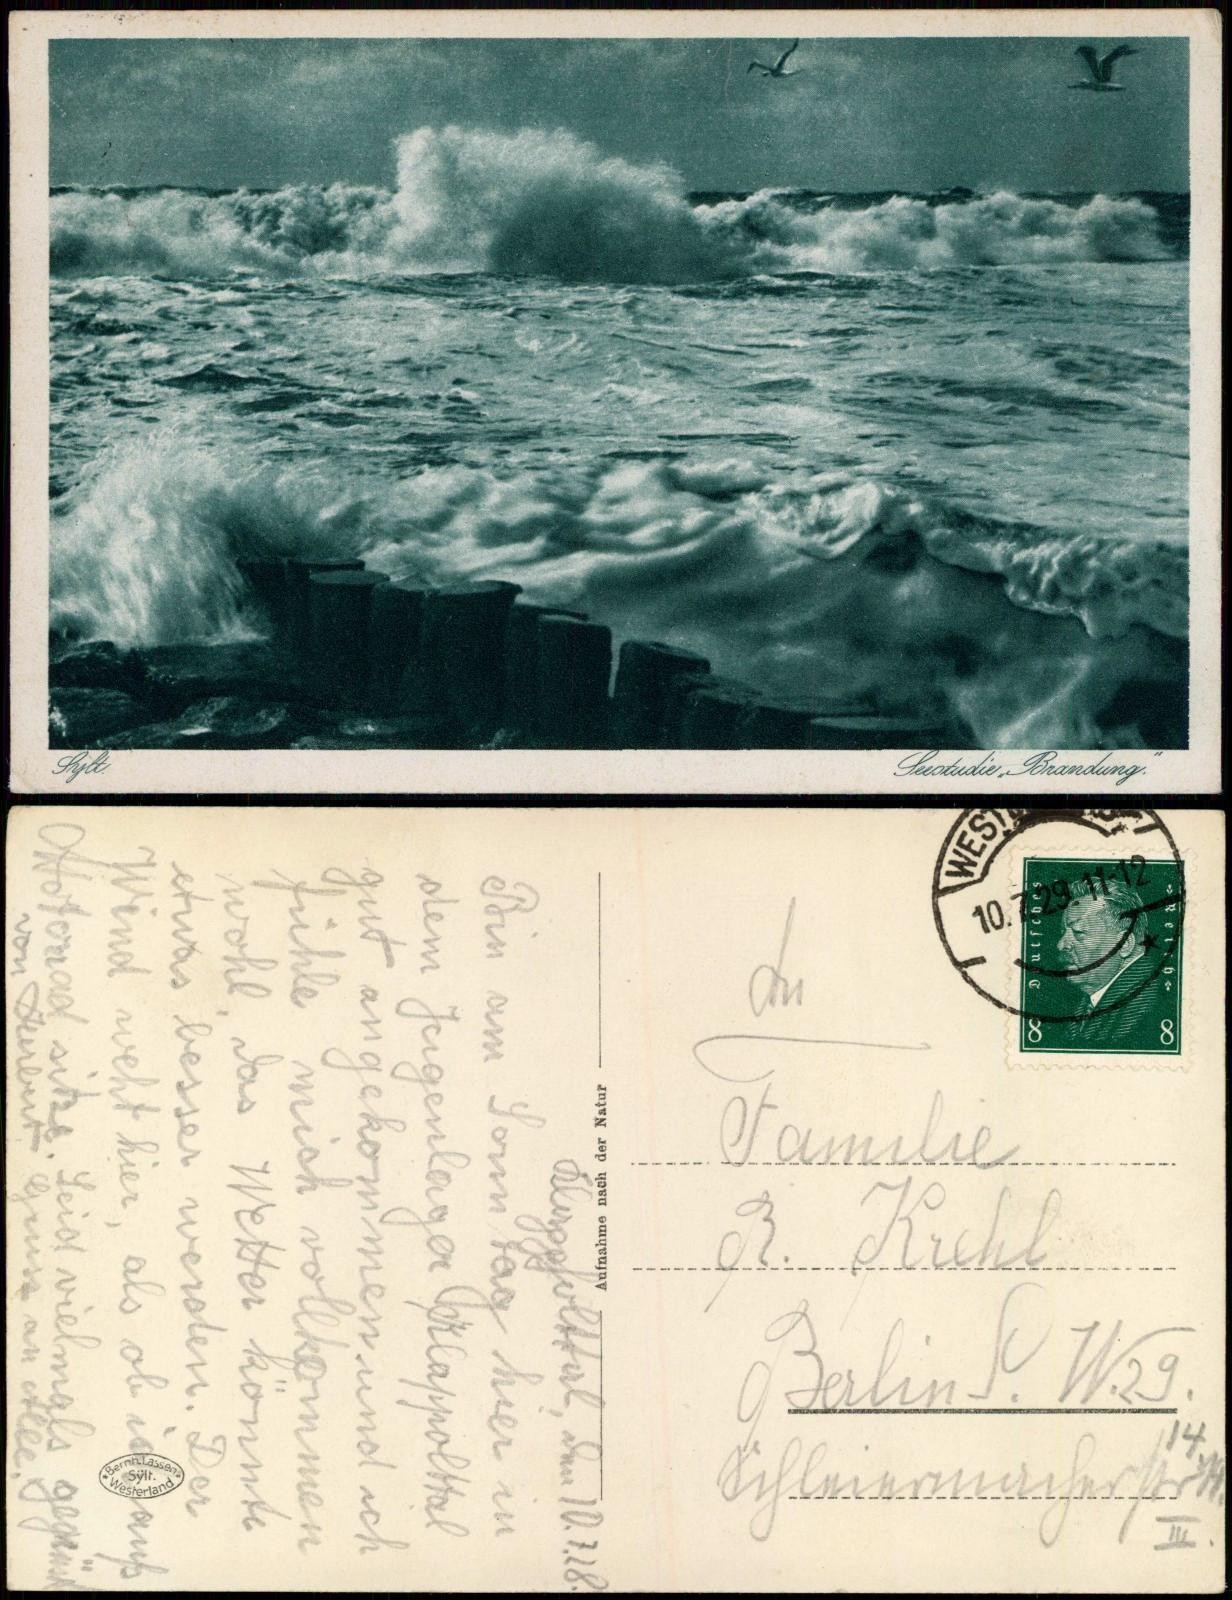 Sylt.
Seestudie „Brandung."
WEST
10.7.29.11-12
Deutsches Reich
8 8
Aufnahme nach der Natur
Bernh. Lassen
Sylt.
Westerland
Klappholttal, den 10.7.28.
Bin am Sonntag hier in
dem Jugenlager Klappolttal
gut angekommen und ich
fühle mich vollkommen
wohl, das Wetter könnte
etwas besser werden. Der
Wind weht hier, als ob ich aufs
Motorad sitze. Seid vielmals gegrüßt
von Herbert. Gruss an alle.
An
Familie
R. Krehl
Berlin S. W. 29.
Schleiermacherstr
14.
III.